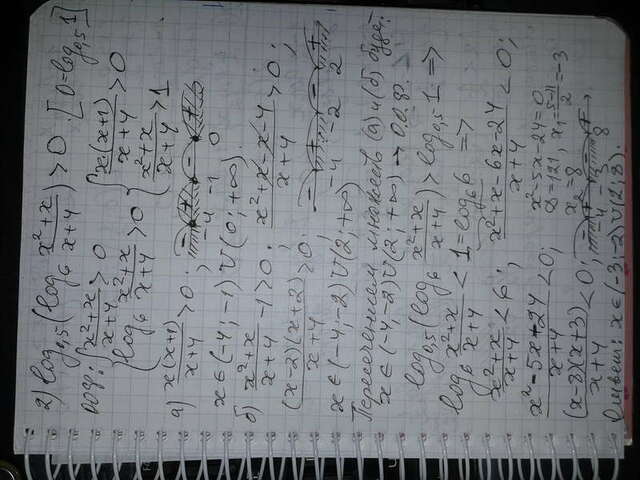 2) log₀,₅(log₆ (x²+x)/(x+4)) > 0 [0=log₀,₅1]
ООФ: { (x²+x)/(x+4) > 0 { x(x+1)/(x+4) > 0
{ log₆ (x²+x)/(x+4) > 0 { (x²+x)/(x+4) > 1
а) x(x+1)/(x+4) > 0; - + - + -4 -1 0
x ∈ (-4; -1) ∪ (0; +∞).
б) (x²+x)/(x+4) - 1 > 0; (x²+x-x-4)/(x+4) > 0;
(x-2)(x+2)/(x+4) > 0; - + - + -4 -2 2
x ∈ (-4; -2) ∪ (2; +∞)
Пересечением множеств (а) и (б) будет:
x ∈ (-4; -2) ∪ (2; +∞) → О.О.Ф.
log₀,₅(log₆ (x²+x)/(x+4)) > log₀,₅1 =>
log₆ (x²+x)/(x+4) < 1 = log₆6 =>
(x²+x)/(x+4) < 6; (x²+x-6x-24)/(x+4) < 0;
(x²-5x-24)/(x+4) < 0; x²-5x-24=0,
(x-8)(x+3)/(x+4) < 0; x₂=8 -4 8
Ответ: x ∈ (-3; -2) ∪ (2; 8).